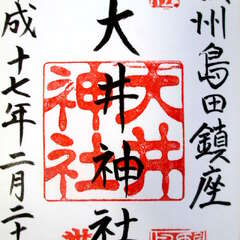 州島田鎮座
大井神社
大井神社
成十七年二月二十